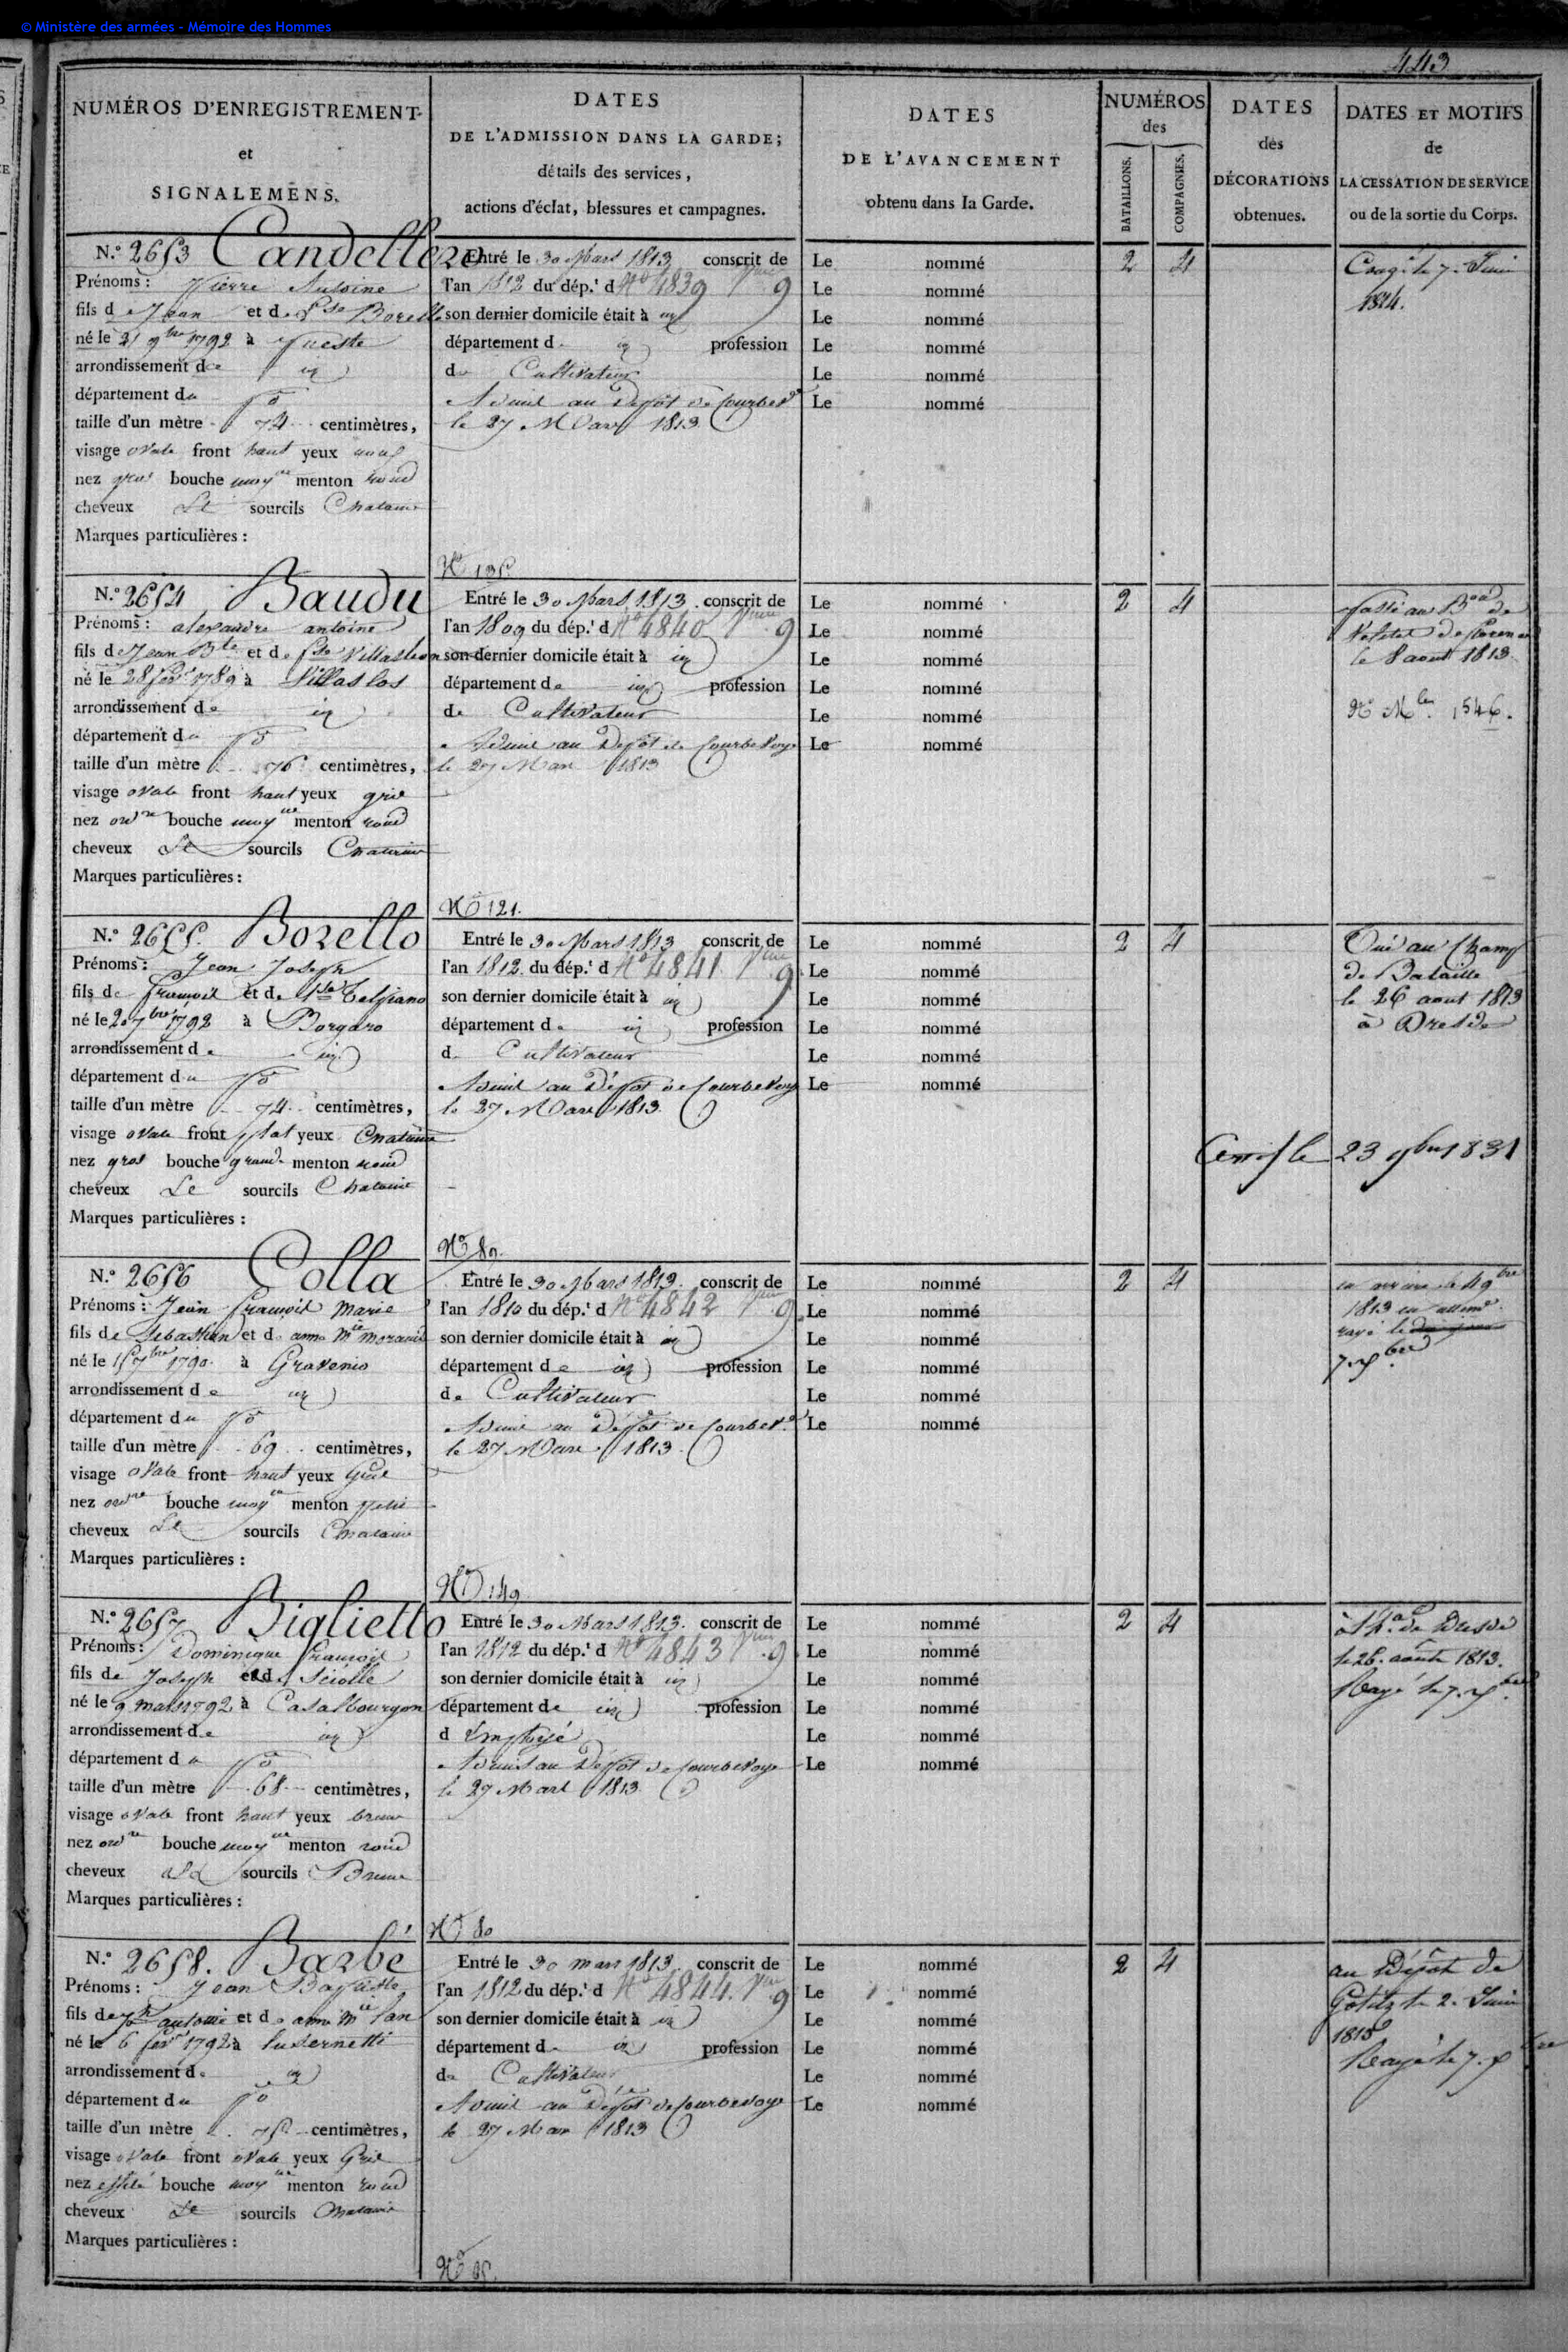 © Ministère des armées - Mémoire des Hommes
443
NUMÉROS D'ENREGISTREMENT
et
SIGNALEMENS.
DATES
DE L'ADMISSION DANS LA GARDE;
détails des services,
actions d'éclat, blessures et campagnes.
DATES
DE L'AVANCEMENT
obtenu dans la Garde.
NUMÉROS
des
BATAILLONS.
COMPAGNIES.
DATES
des
DÉCORATIONS
obtenues.
DATES ET MOTIFS
de
LA CESSATION DE SERVICE
ou de la sortie du Corps.
N.° 2653 Candellero
Prénoms: Pierre Antoine
fils de Jean et de Borello
né le 21 9bre 1792 à
arrondissement de
département du Pô
taille d'un mètre 74 centimètres,
visage ovale front haut yeux
nez gros bouche moyne menton rond
cheveux Id sourcils Chatains
Marques particulières:
Entré le 30 Mars 1813 conscrit de
l'an 1812 du dép.t d No 4839 9
son dernier domicile était à
département d profession
de Cultivateur
Arrivé au Dépôt de Courbev
le 27 Mars 1813.
Le nommé
Le nommé
Le nommé
Le nommé
Le nommé
Le nommé
2 4
Congé le 7. Juin
1814.
No 135
N.° 2654 Baudu
Prénoms: alexandre antoine
fils de Jean Bte et de
né le 28 fevr 1789 à
arrondissement de
département du Pô
taille d'un mètre 76 centimètres,
visage ovale front haut yeux gris
nez ordre bouche moyne menton rond
cheveux Id sourcils Chatains
Marques particulières:
Entré le 30 Mars 1813. conscrit de
l'an 1809 du dép.t d No 4840 9
son dernier domicile était à
département de profession
de Cultivateur
Arrivé au Dépôt de Courbevoye
le 27 Mars 1813
Le nommé
Le nommé
Le nommé
Le nommé
Le nommé
Le nommé
2 4
Passé au Bon de
de
le 8 aout 1813.
No Mle 1546.
No 121.
N.° 2655. Borello
Prénoms: Jean Joseph
fils de François et de
né le 20 7bre 1792 à Borgaro
arrondissement de
département du Pô
taille d'un mètre 74 centimètres,
visage ovale front plat yeux Chatains
nez gros bouche grande menton rond
cheveux Id sourcils Chatains
Marques particulières:
Entré le 30 Mars 1813 conscrit de
l'an 1812 du dép.t d No 4841 9
son dernier domicile était à
département de profession
d Cultivateur
Arrivé au Dépôt de Courbevoye
le 27 Mars 1813.
Le nommé
Le nommé
Le nommé
Le nommé
Le nommé
Le nommé
2 4
Tué au Champ
de Bataille
le 26 aout 1813
à Dresde
le 23 9bre 1831
No 89.
N.° 2656 Colla
Prénoms: Jean François Marie
fils de Sébastien et de anne Mie
né le 15 7bre 1790 à
arrondissement de
département du Pô
taille d'un mètre 69 centimètres,
visage ovale front haut yeux Gris
nez ordre bouche moyne menton petit
cheveux Id sourcils Chatains
Marques particulières:
Entré le 30 Mars 1813. conscrit de
l'an 1810 du dép.t d No 4842 9
son dernier domicile était à
département de profession
de Cultivateur
Arrivé au Dépôt de Courbev
le 27 Mars 1813.
Le nommé
Le nommé
Le nommé
Le nommé
Le nommé
Le nommé
2 4
en arrière le 4 9bre
1813
rayé le
No 149
N.° 2657 Biglietto
Prénoms: Dominique François
fils de Joseph et de
né le 9 mars 1792 à
arrondissement de
département du Pô
taille d'un mètre 68 centimètres,
visage ovale front haut yeux bruns
nez ordre bouche moyne menton rond
cheveux Id sourcils Bruns
Marques particulières:
Entré le 30 Mars 1813. conscrit de
l'an 1812 du dép.t d No 4843 9
son dernier domicile était à
département de profession
d Employé
Arrivé au Dépôt de Courbevoye
le 27 Mars 1813.
Le nommé
Le nommé
Le nommé
Le nommé
Le nommé
Le nommé
2 4
de Dresde
le 26. août 1813.
Rayé le 7.
No 80
N.° 2658. Barbé
Prénoms: Jean Baptiste
fils de antoine et de anne Mie
né le 6 fevr 1792 à
arrondissement de
département du Pô
taille d'un mètre 75 centimètres,
visage ovale front ovale yeux Gris
nez effilé bouche moyne menton rond
cheveux Id sourcils Chatains
Marques particulières:
Entré le 30 mars 1813. conscrit de
l'an 1812 du dép.t d No 4844 9
son dernier domicile était à
département d profession
de Cultivateur
Arrivé au Dépôt de Courbevoye
le 27 Mars 1813
Le nommé
Le nommé
Le nommé
Le nommé
Le nommé
Le nommé
2 4
au Dépôt de
le 2. Juin
1813
Rayé le 7.